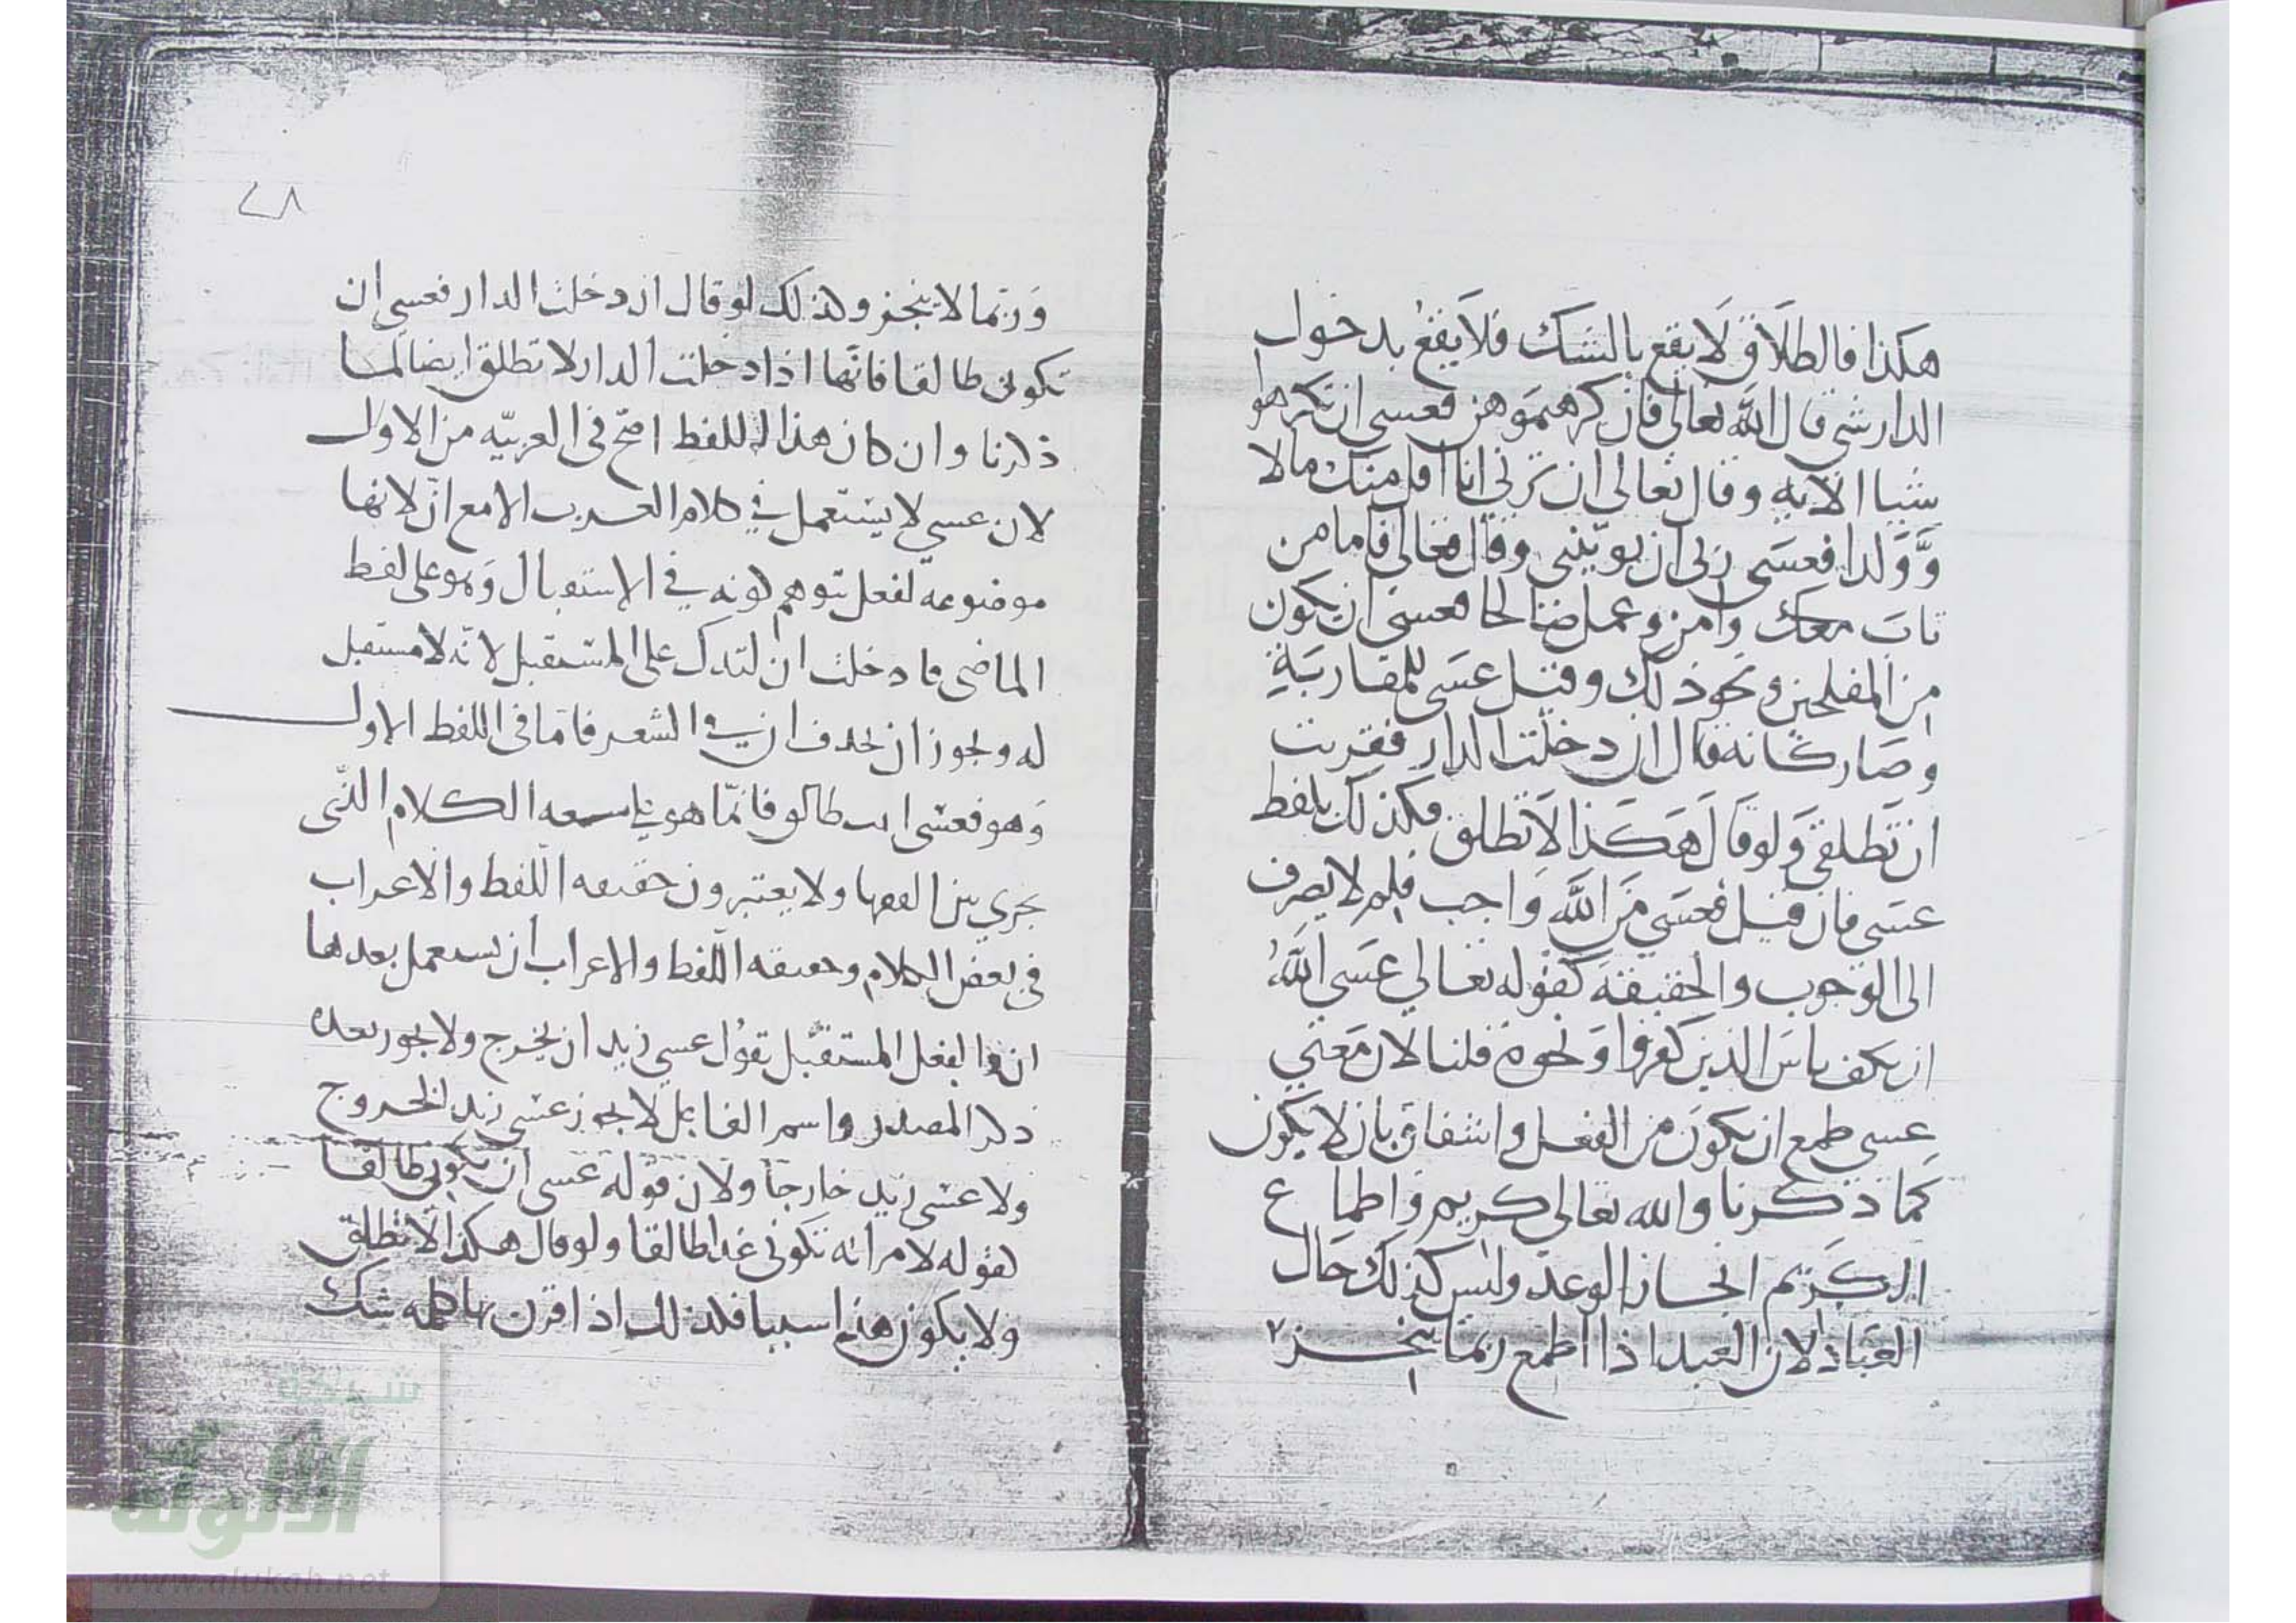 هكذا فالطلاق لا يقع بالشك فلا يقع بدخول
الدار شي قال الله تعالى فان كرهتموهن فعسى ان تكرهوا
شيا الآيه وقال تعالى ان ترني انا اقل منك مالا
وولدا فعسى ربي ان يوتيني وقال تعالى فاما من
تاب معك وامن وعمل صالحا فعسى ان يكون
من المفلحين ونحو ذلك وقيل عسى للمقاربة
وصار كانه قال ان دخلت الدار فقربت
ان تطلقي ولو قال هكذا لا تطلق فكذلك بلفظ
عسى فان قيل فعسى من الله واجب فلم لا يصرف
الى الوجوب والحقيقة كقوله تعالى عسى الله
ان يكف باس الذين كفروا ونحوه قلنا لان معنى
عسى طمع ان يكون من الفعل واشفاق بان لا يكون
كما ذكرنا والله تعالى كريم واطماع
الكريم انجاز الوعد وليس كذلك حال
العباد لان العبد اذا اطمع ربما ينجز
٢٨
وربما لا ينجز ولذلك لو قال ان دخلت الدار فعسى ان
تكوني طالقا فانها اذا دخلت الدار لا تطلق ايضا لما
ذكرنا وان كان هذا اللفظ اصح في العربيه من الاول
لان عسى لا يستعمل في كلام العرب الا مع ان لانها
موضوعة لفعل توهم كونه في الاستقبال وهو على لفظ
الماضي فادخلت ان لتدل على المستقبل لانه لا مستقبل
له ويجوز ان يحذف ان في الشعر فاما في اللفظ الاول
وهو فعسى انت طالق فانما هو الكلام الذي
يجري بين الفقها ولا يعتبرون حقيقه اللفظ والاعراب
في بعض الكلام وحقيقه اللفظ والاعراب ان يستعمل بعدها
ان والفعل المستقبل تقول عسى زيد ان يخرج ولا يجوز بعده
ذكر المصدر واسم الفاعل لا يجوز عسى زيد الخروج
ولا عسى زيد خارجا ولان قوله عسى ان تكوني طالقا
كقوله لامراته تكوني غدا طالقا ولو قال هكذا لا تطلق
ولا يكون هذا سببا فلذلك اذا اقرن بها كلمه شك
شبكة
الألوكة
www.alukah.net